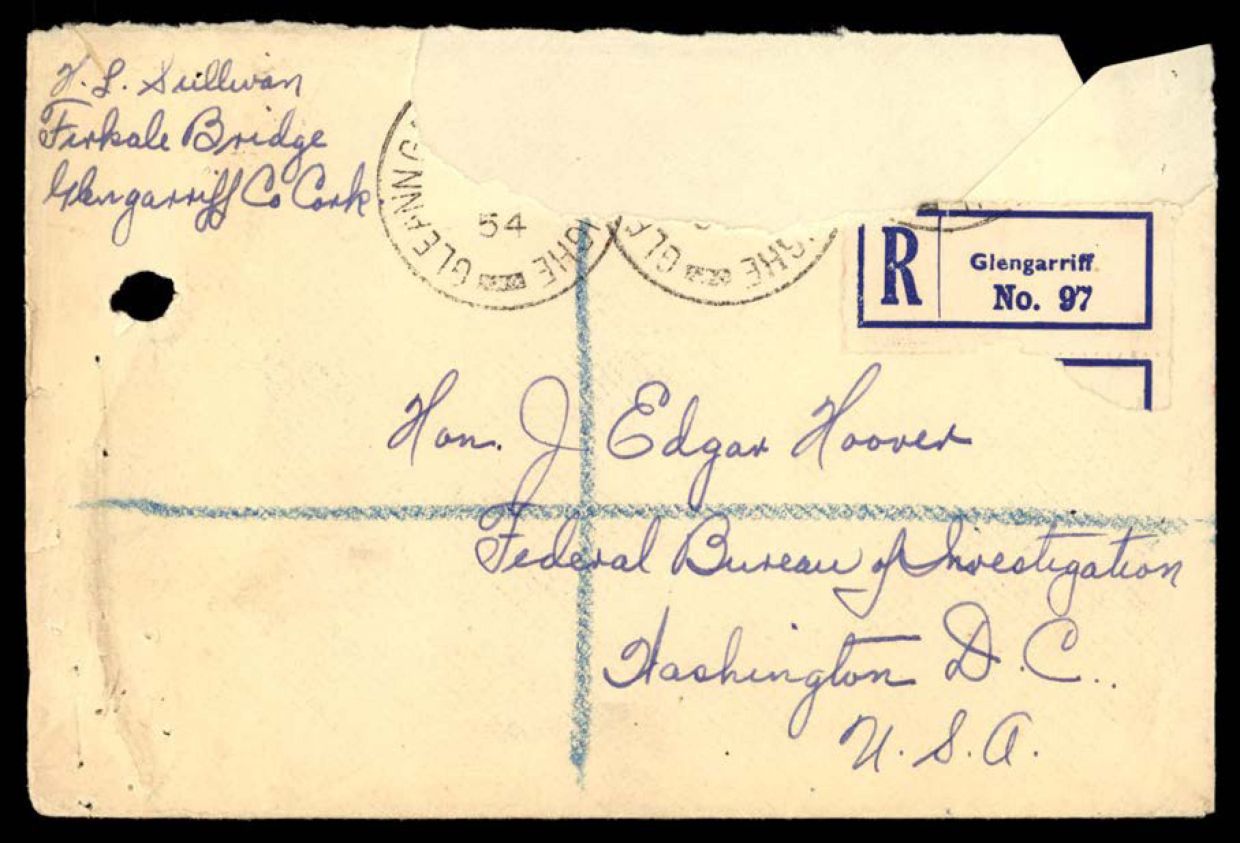 T. L. Sullivan
Firkale Bridge
Glengarriff Co Cork.
GLEANN G
54
GHE
GLE
GHE
R
Glengarriff
No. 97
Hon. J Edgar Hoover
Federal Bureau of Investigation
Washington D.C..
U.S.A.